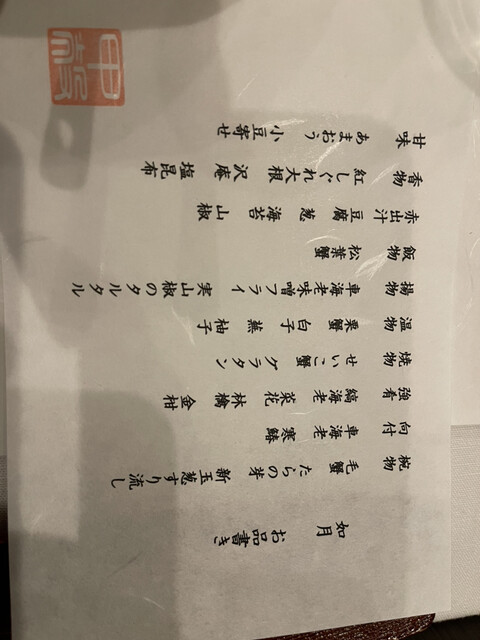 如月 お品書き
椀物 毛蟹 たらの芽 新玉葱すり流し
向付 車海老 寒鰆
強肴 縞海老 菜花 林檎 金柑
焼物 せいこ蟹 グラタン
温物 栗蟹 白子 蕪 柚子
揚物 車海老味噌フライ 実山椒のタルタル
飯物 松葉蟹
赤出汁 豆腐 葱 海苔 山椒
香物 紅しぐれ大根 沢庵 塩昆布
甘味 あまおう 小豆寄せ
甲殻